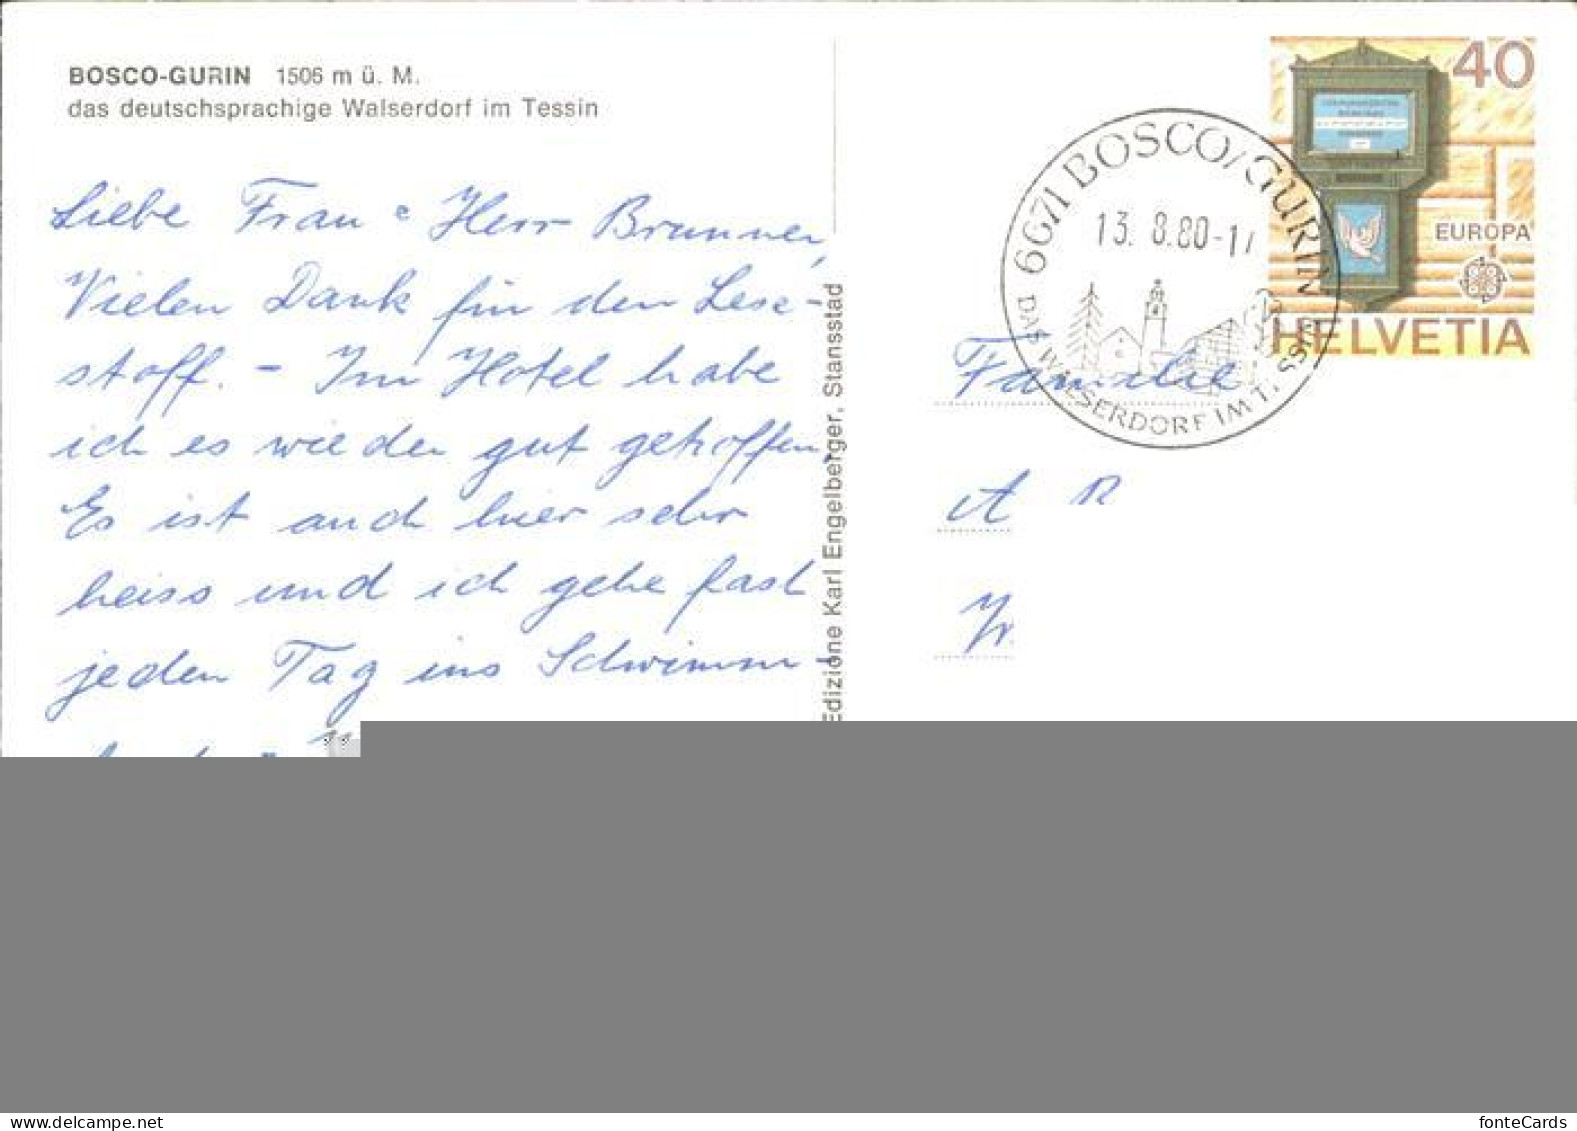 BOSCO-GURIN 1506 m ü. M.
das deutschsprachige Walserdorf im Tessin
Liebe Frau & Herr Brunner,
Vielen Dank für den Lese-
stoff. - Im Hotel habe
ich es wieder gut getroffen.
Es ist auch hier sehr
heiss und ich gehe fast
jeden Tag ins Schwimm-
Edizione Karl Engelberger, Stansstad
6671 BOSCO/GURIN
13. 8.80-17
DAS WALSERDORF IM TESSIN
40
EUROPA
HELVETIA
Familie
A R
delcampe.net
fonteCards